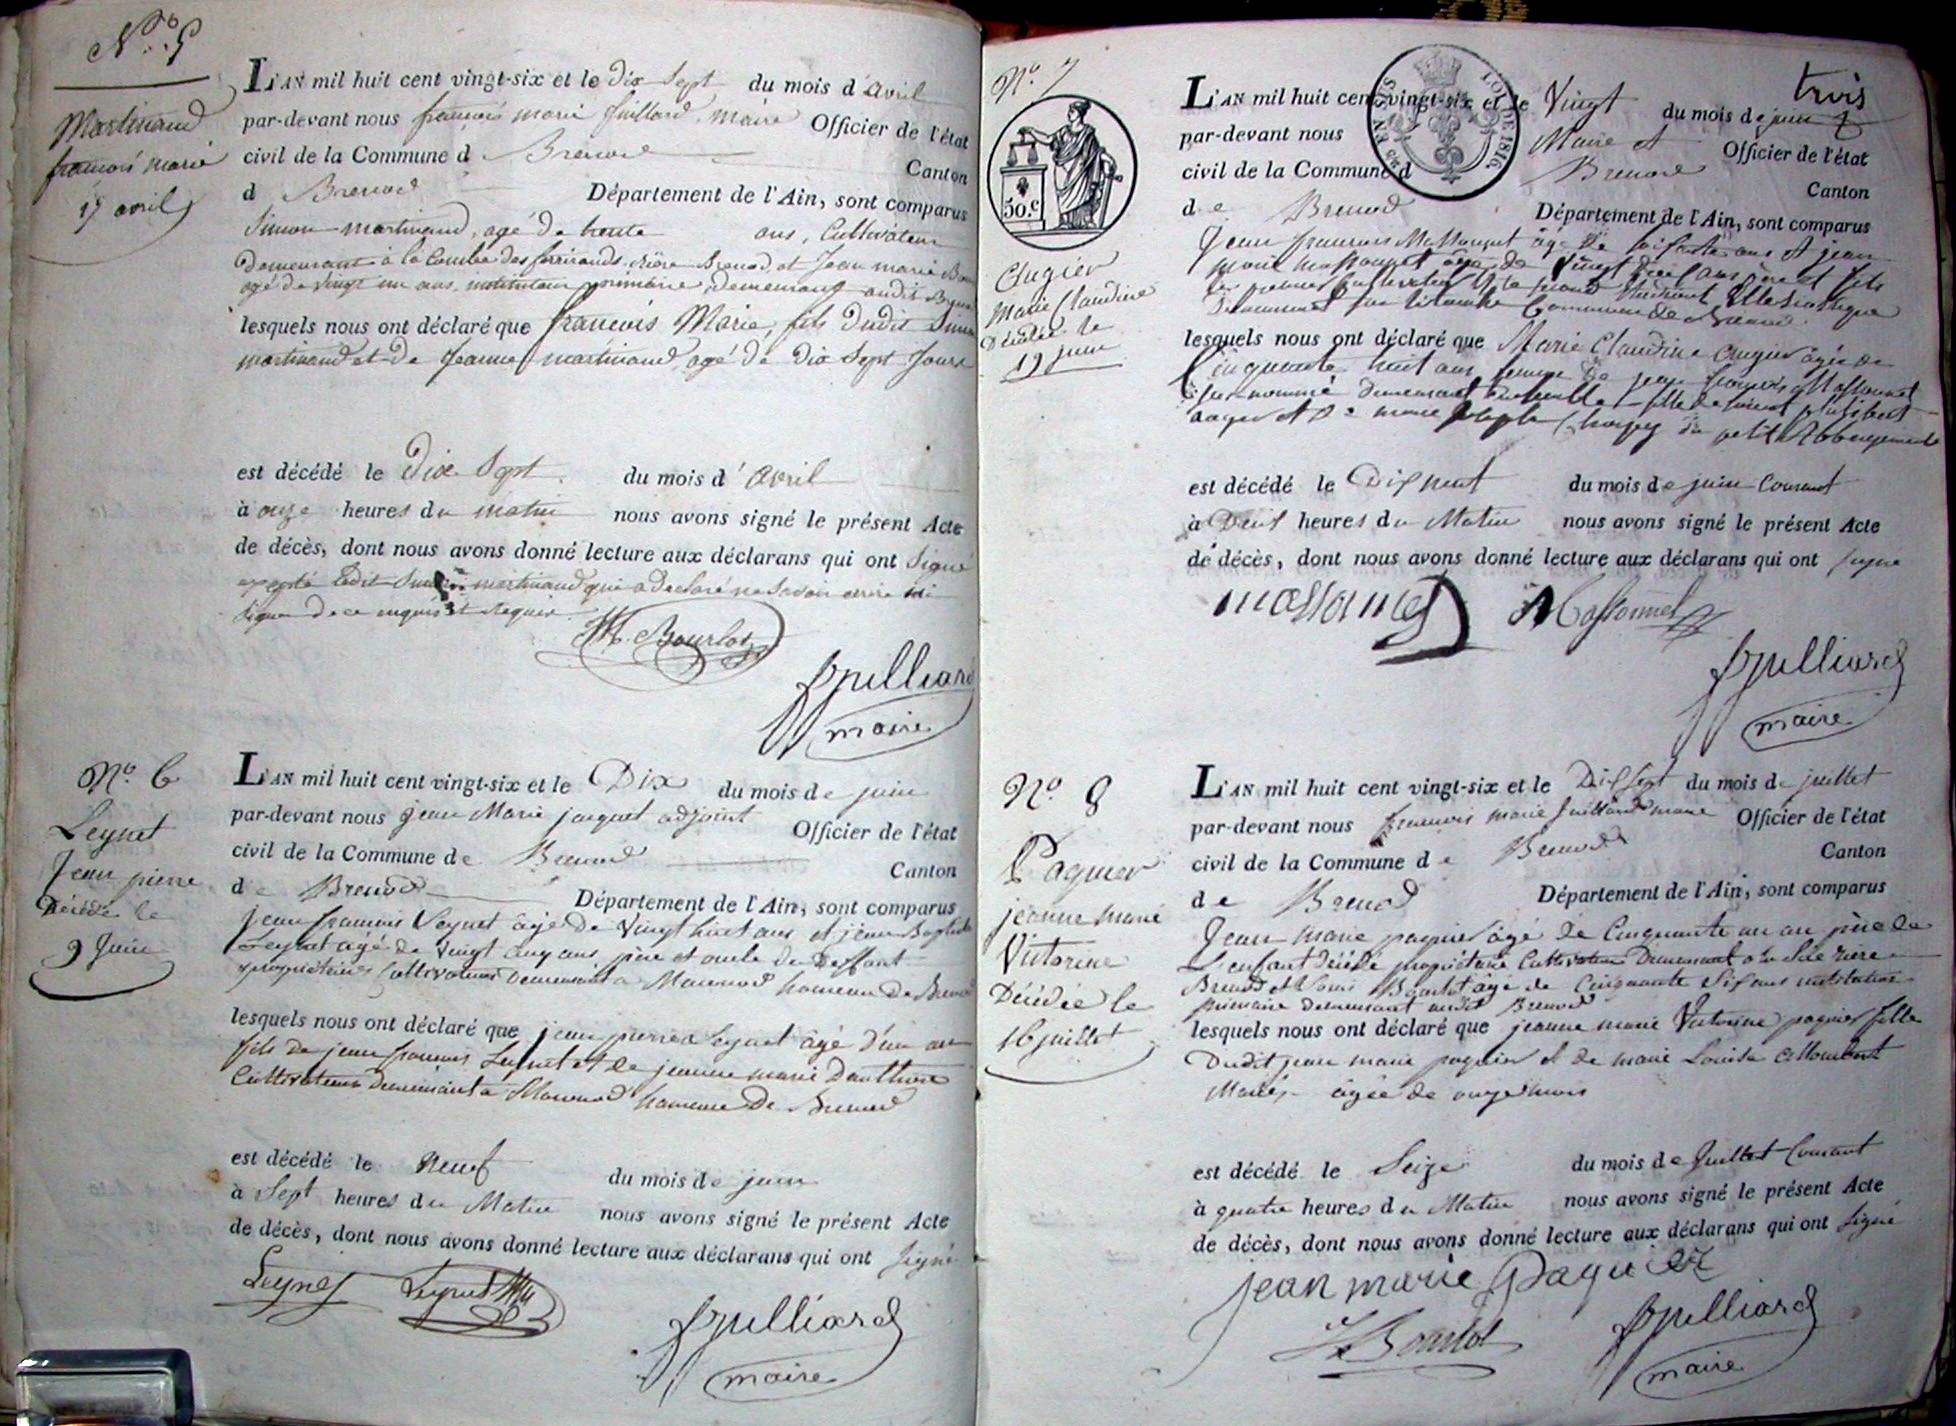 N.º 5
Martinand
françois marie
17 avril
L'AN mil huit cent vingt-six et le dix sept du mois d'avril
par-devant nous françois marie juillard, maire Officier de l'état
civil de la Commune d Brenod Canton
d Brenod Département de l'Ain, sont comparus
Simon martinand, agé de trente ans, Cultivateur
demeurant à la Combe des ferrirands, rière Brenod, et Jean marie
agé de vingt un ans, instituteur primaire, demeurant audit
lesquels nous ont déclaré que françois Marie, fils dudit Simon
martinand et de Jeanne martinand, agé de dix Sept Jours
est décédé le Dix Sept du mois d'avril
à onze heures du matin nous avons signé le présent Acte
de décès, dont nous avons donné lecture aux déclarans qui ont Signé
excepté ledit Simon martinand qui a declaré ne Savoir écrire ni
Signer de ce enquis et requis
M. Bourlot
fjuilliard
maire
Nº. 6
Leynet
Jean pierre
Décédé le
9 Juin
L'AN mil huit cent vingt-six et le Dix du mois de juin
par-devant nous jean Marie jacquet adjoint Officier de l'état
civil de la Commune de Brenod Canton
de Brenod Département de l'Ain, sont comparus
jean françois Leynet âgé de Vingt huit ans et jean Baptiste
Leynet agé de Vingt ans, père et oncle du Deffunt
propriétaires Cultivateurs Demeurant a Macenod hameau de Brenod
lesquels nous ont déclaré que jean pierre Leynet âgé d'un an
fils de jean françois Leynet et de jeanne marie
Cultivateurs Demeurant à Macenod hameau De Brenod
est décédé le Neuf du mois de juin
à Sept heures du Matin nous avons signé le présent Acte
de décès, dont nous avons donné lecture aux déclarans qui ont Signé
Leynet Leynet
fjuilliard
maire
trois
Nº. 7
50.c
Cugier
Marie Claudine
Décédée le
19 juin
L'AN mil huit cent vingt-six et le Vingt du mois de juin
par-devant nous Maire et Officier de l'état
civil de la Commune d Brenod Canton
de Brenod Département de l'Ain, sont comparus
Jean françois Massonnet âgé de soixante ans et jean
marie Massonnet âgé de Vingt ans père et fils
le premier Cultivateur et le second Etudiant Ecclésiastique
Demeurant Commune de Brenod
lesquels nous ont déclaré que Marie Claudine Cugier âgée de
Cinquante huit ans femme de jean françois Massonnet
susnommé demeurant fille de
et de marie joseph du petit Abbergement
est décédé le Dixneuf du mois de juin Courant
à Deux heures du Matin nous avons signé le présent Acte
de décès, dont nous avons donné lecture aux déclarans qui ont signé
massonnet Massonnet
fjuilliard
maire
Nº. 8
Paquier
jeanne marie
Victorine
Décédée le
16 juillet
L'AN mil huit cent vingt-six et le Dix sept du mois de juillet
par-devant nous françois marie juilliard maire Officier de l'état
civil de la Commune de Brenod Canton
de Brenod Département de l'Ain, sont comparus
Jean Marie paquier âgé de Cinquante un an père de
L'enfant décédé propriétaire Cultivateur Demeurant rière
Brenod et Bourlot âgé de Cinquante Six ans instituteur
primaire demeurant audit Brenod
lesquels nous ont déclaré que jeanne marie Victorine paquier fille
Dudit jean marie paquier et de marie Louise Collombert
Mariés âgée de onze mois
est décédé le Seize du mois de Juillet Courant
à quatre heures du Matin nous avons signé le présent Acte
de décès, dont nous avons donné lecture aux déclarans qui ont Signé
jean marie paquier
Bourlot
fjuilliard
maire